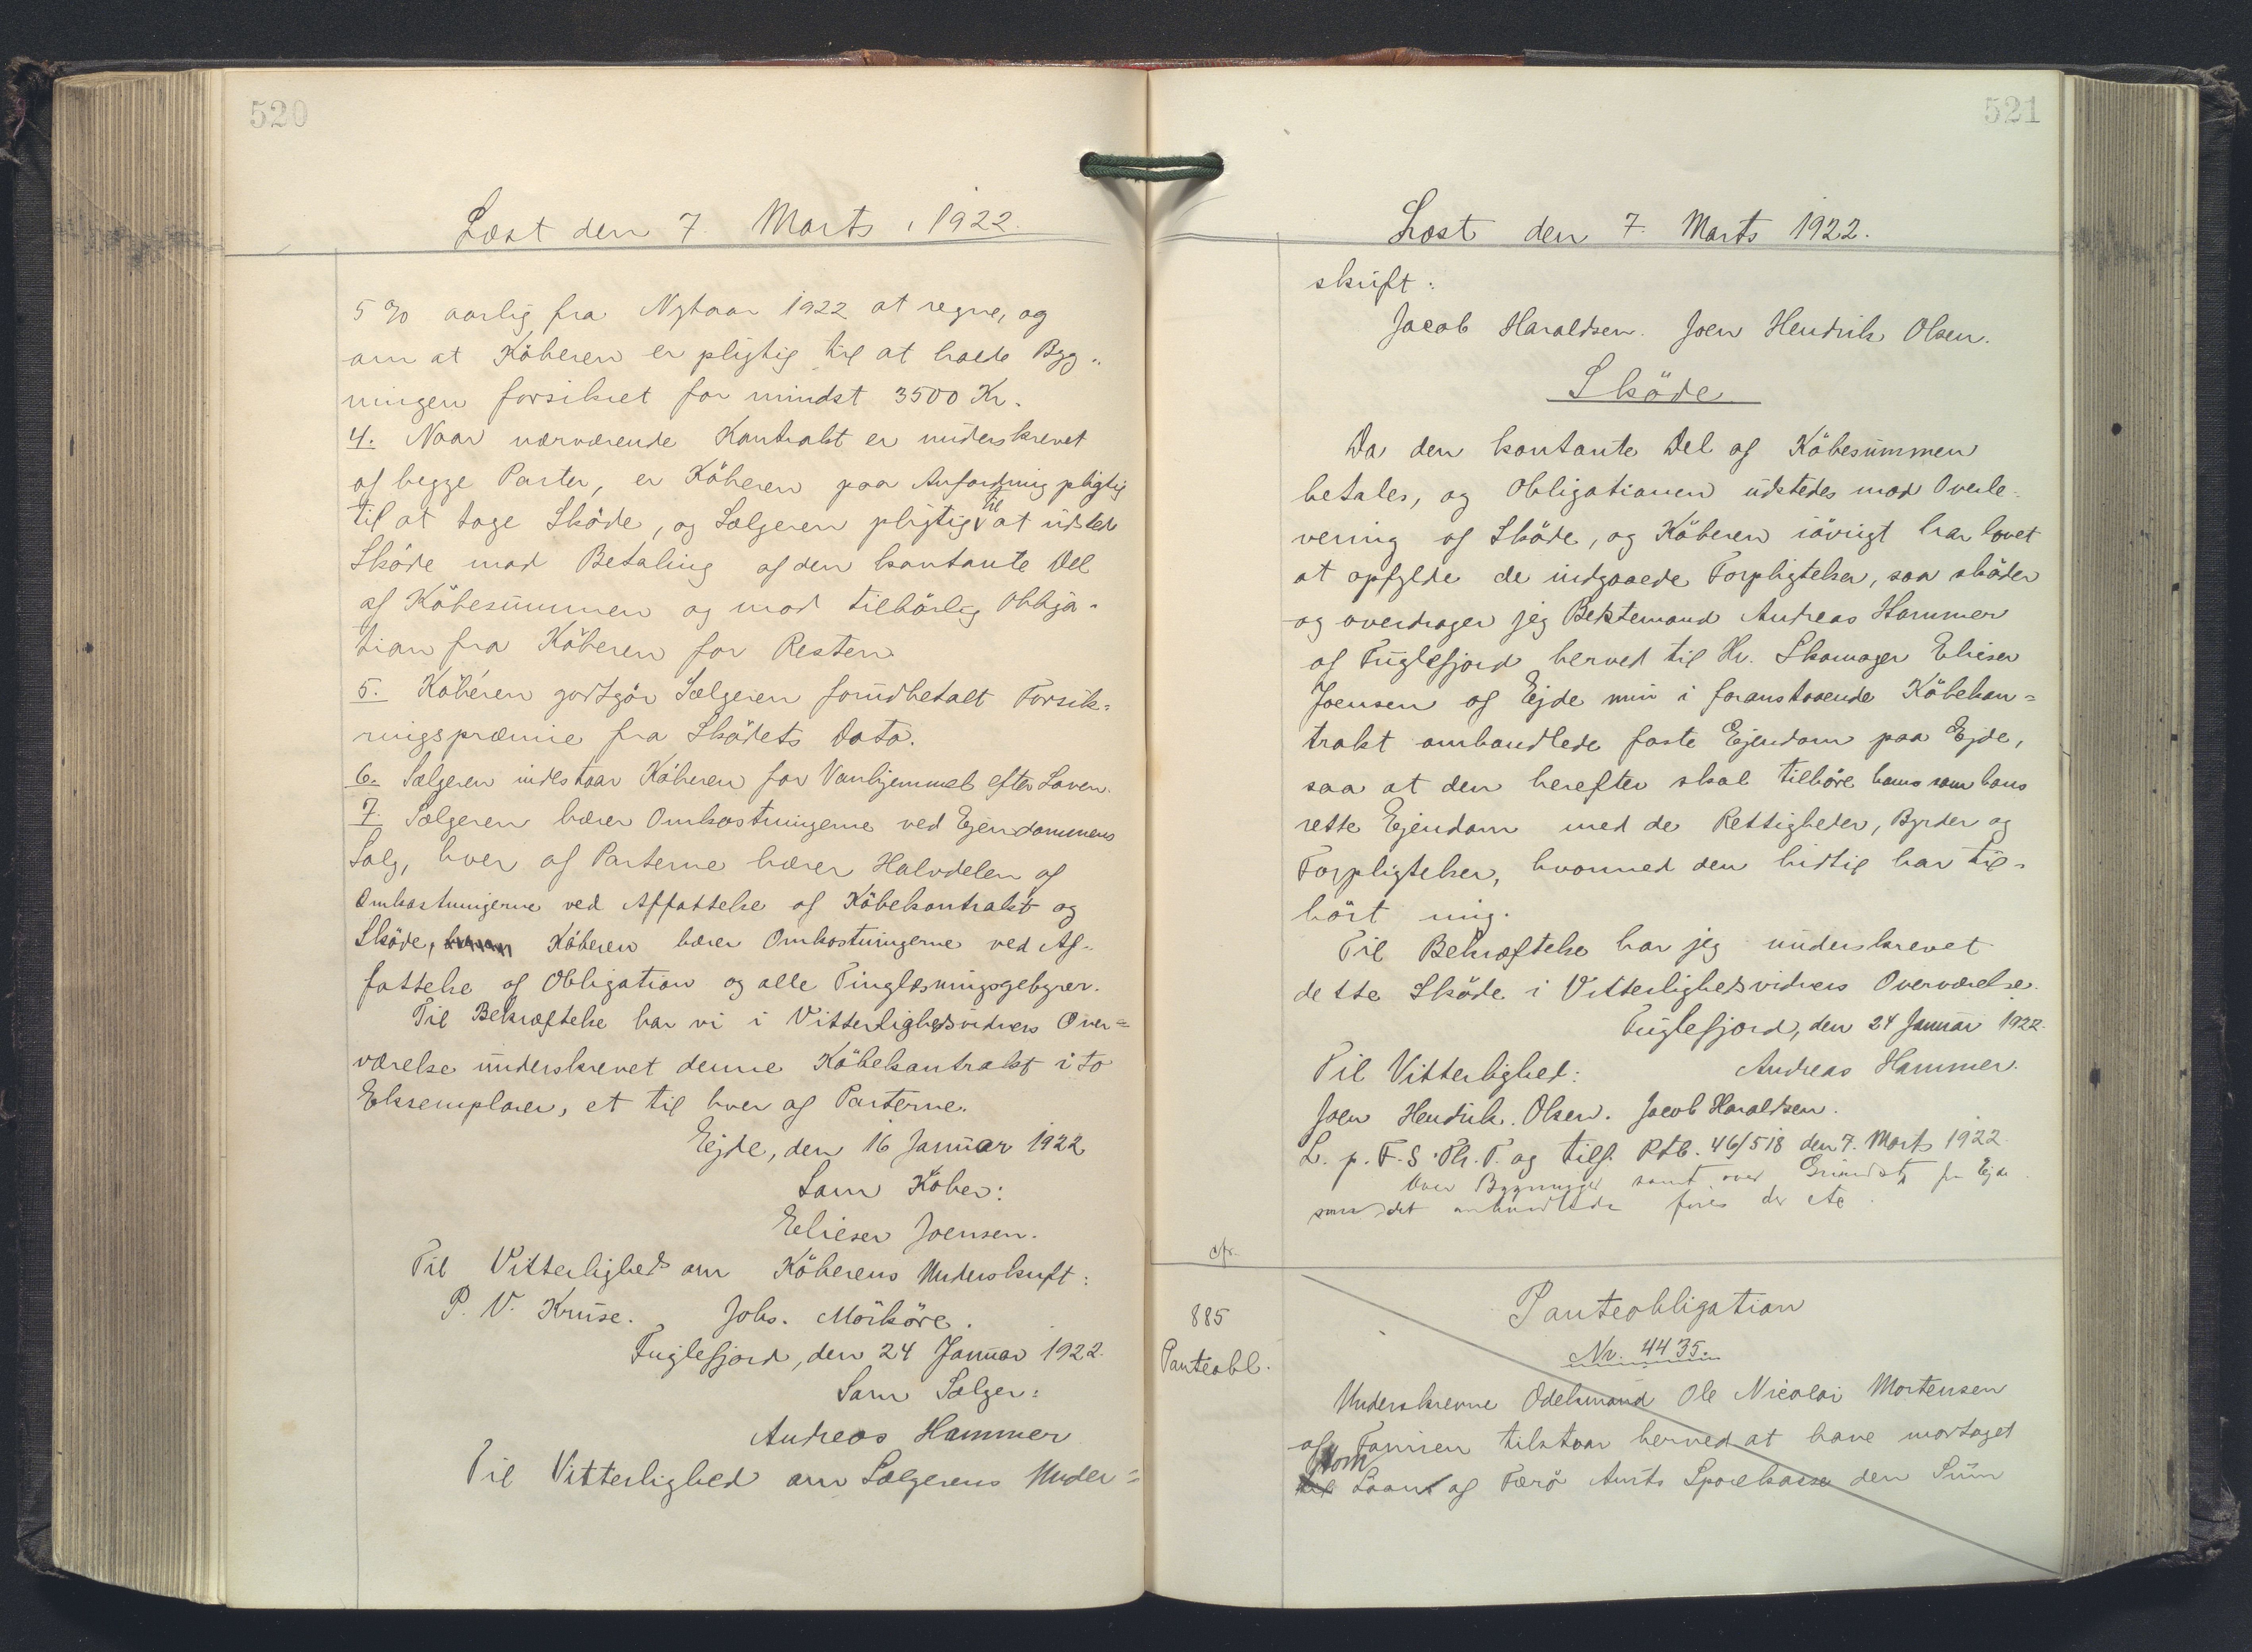 520
Læst den 7. Marts 1922.
5 % aarlig fra Nytaar 1922 at regne, og
om at Köberen er pligtig til at holde Byg-
ningen forsikret for mindst 3500 Kr.
4. Naar nærværende Kontrakt er underskrevet
af begge Parter, er Köberen paa Anfordring pligtig
til at tage Sköde, og Sælgeren pligtig til at udstede
Sköde mod Betaling af den kontante Del
af Köbesummen og mod tilbörlig Obliga-
tion fra Köberen for Resten.
5. Köberen godtgör Sælgeren forudbetalt Forsik-
ringspræmie fra Sködets Dato.
6. Sælgeren indestaar Köberen for Vanhjemmel efter Loven.
7. Sælgeren bærer Omkostningerne ved Ejendommens
Salg, hver af Parterne bærer Halvdelen af
Omkostningerne ved Affattelse af Köbekontrakt og
Sköde, Köberen bærer Omkostningerne ved Af-
fattelse af Obligation og alle Tinglæsningsgebyrer.
Til Bekræftelse har vi i Vitterlighedsvidners Over=
værelse underskrevet denne Köbekontrakt i to
Eksemplarer, et til hver af Parterne.
Ejde, den 16 Januar 1922
Som Köber:
Elieser Joensen.
Til Vitterlighed om Köberens Underskrift:
P. V. Kruse. Johs. Mörköre.
Fuglefjord, den 24 Januar 1922.
Som Sælger:
Andreas Hammer
Til Vitterlighed om Sælgerens Under=
521
Læst den 7. Marts 1922.
skrift:
Jacob Haraldsen. Joen Hendrik Olsen.
Sköde
Da den kontante Del af Köbesummen
betales, og Obligationen udstedes mod Overle-
vering af Sköde, og Köberen iövrigt har lovet
at opfylde de indgaaede Forpligtelser, saa sköder
og overdrager jeg Bektemand Andreas Hammer
af Fuglefjord herved til Hr. Skomager Elieser
Joensen af Ejde min i foranstaaende Köbekon=
trakt omhandlede faste Ejendom paa Ejde,
saa at den herefter skal tilhöre ham som hans
rette Ejendom med de Rettigheder, Byrder og
Forpligtelser, hvormed den hidtil har til-
hört mig.
Til Bekræftelse har jeg underskrevet
dette Sköde i Vitterlighedsvidners Overværelse.
Fuglefjord, den 24 Januar 1922.
Til Vitterlighed: Andreas Hammer.
Joen Hendrik Olsen. Jacob Haraldsen.
L. p. F. S. Th. T. og tilf. Rtb. 46/518 den 7. Marts 1922
over Bygninger samt over
som det omhandlede
cfr.
885
Panteobl.
Panteobligation
Nr. 4435.
Underskrevne Odelsmand Ole Nicolai Mortensen
af Famien tilstaar herved at have modtaget
til som Laan af Færö Amts Sparekasse den Sum